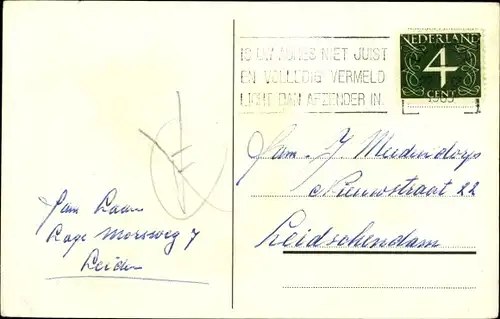 IS UW ADRES NIET JUIST
EN VOLLEDIG VERMELD
LICHT DAN AFZENDER IN.
NEDERLAND
4
CENT
Fam. J
Nieuwstraat 22
Leidschendam
Fam Laan
Lage Morsweg 7
Leiden